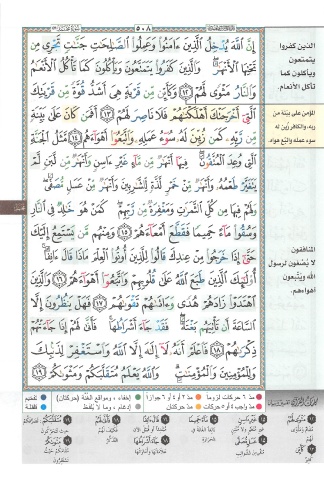 ٥٠٨
إِنَّ ٱللَّهَ يُدْخِلُ ٱلَّذِينَ ءَامَنُوا۟ وَعَمِلُوا۟ ٱلصَّٰلِحَٰتِ جَنَّٰتٍ تَجْرِى مِن
تَحْتِهَا ٱلْأَنْهَٰرُ ۖ وَٱلَّذِينَ كَفَرُوا۟ يَتَمَتَّعُونَ وَيَأْكُلُونَ كَمَا تَأْكُلُ ٱلْأَنْعَٰمُ
وَٱلنَّارُ مَثْوًى لَّهُمْ ١٢ وَكَأَيِّن مِّن قَرْيَةٍ هِىَ أَشَدُّ قُوَّةً مِّن قَرْيَتِكَ
ٱلَّتِىٓ أَخْرَجَتْكَ أَهْلَكْنَٰهُمْ فَلَا نَاصِرَ لَهُمْ ١٣ أَفَمَن كَانَ عَلَىٰ بَيِّنَةٍ
مِّن رَّبِّهِۦ كَمَن زُيِّنَ لَهُۥ سُوٓءُ عَمَلِهِۦ وَٱتَّبَعُوٓا۟ أَهْوَآءَهُم ١٤ مَّثَلُ ٱلْجَنَّةِ
ٱلَّتِى وُعِدَ ٱلْمُتَّقُونَ ۖ فِيهَآ أَنْهَٰرٌ مِّن مَّآءٍ غَيْرِ ءَاسِنٍ وَأَنْهَٰرٌ مِّن لَّبَنٍ لَّمْ
يَتَغَيَّرْ طَعْمُهُۥ وَأَنْهَٰرٌ مِّنْ خَمْرٍ لَّذَّةٍ لِّلشَّٰرِبِينَ وَأَنْهَٰرٌ مِّنْ عَسَلٍ مُّصَفًّى ۖ
وَلَهُمْ فِيهَا مِن كُلِّ ٱلثَّمَرَٰتِ وَمَغْفِرَةٌ مِّن رَّبِّهِمْ ۖ كَمَنْ هُوَ خَٰلِدٌ فِى ٱلنَّارِ
وَسُقُوا۟ مَآءً حَمِيمًا فَقَطَّعَ أَمْعَآءَهُمْ ١٥ وَمِنْهُم مَّن يَسْتَمِعُ إِلَيْكَ
حَتَّىٰٓ إِذَا خَرَجُوا۟ مِنْ عِندِكَ قَالُوا۟ لِلَّذِينَ أُوتُوا۟ ٱلْعِلْمَ مَاذَا قَالَ ءَانِفًا ۚ
أُو۟لَٰٓئِكَ ٱلَّذِينَ طَبَعَ ٱللَّهُ عَلَىٰ قُلُوبِهِمْ وَٱتَّبَعُوٓا۟ أَهْوَآءَهُمْ ١٦ وَٱلَّذِينَ
ٱهْتَدَوْا۟ زَادَهُمْ هُدًى وَءَاتَىٰهُمْ تَقْوَىٰهُمْ ١٧ فَهَلْ يَنظُرُونَ إِلَّا
ٱلسَّاعَةَ أَن تَأْتِيَهُم بَغْتَةً ۖ فَقَدْ جَآءَ أَشْرَاطُهَا ۚ فَأَنَّىٰ لَهُمْ إِذَا جَآءَتْهُمْ
ذِكْرَىٰهُمْ ١٨ فَٱعْلَمْ أَنَّهُۥ لَآ إِلَٰهَ إِلَّا ٱللَّهُ وَٱسْتَغْفِرْ لِذَنۢبِكَ
وَلِلْمُؤْمِنِينَ وَٱلْمُؤْمِنَٰتِ ۗ وَٱللَّهُ يَعْلَمُ مُتَقَلَّبَكُمْ وَمَثْوَىٰكُمْ ١٩
الذين كفروا
يتمتعون
ويأكلون كما
تأكل الأنعام.
المؤمن على بينة من
ربه، والكافر زُين له
سوء عمله واتبع هواه.
المنافقون
لا يُنصتون لرسول
الله ويتّبعون
أهواءهم.
مدّ ٦ حركات لزوماً
مدّ ٢ أو ٤ أو ٦ جوازاً
إخفاء، ومواقع الغُنَّة (حركتان)
تفخيم
مدّ واجب ٤ أو ٥ حركات
مدّ حركتان
إدغام، وما لا يُلفظ
قلقلة